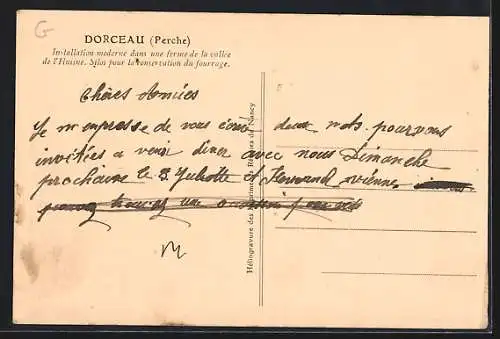 G
DORCEAU (Perche)
Installation moderne dans une ferme de la vallée
de l'Huisne. Silos pour la conservation du fourrage.
Chères Amies
Je m'empresse de vous écrire deux mots pour vous
invitées a venir diner avec nous Dimanche
prochaine le 3 Juliette et Fernand vienne
Héliogravure des Imprimeries Réunies de Nancy